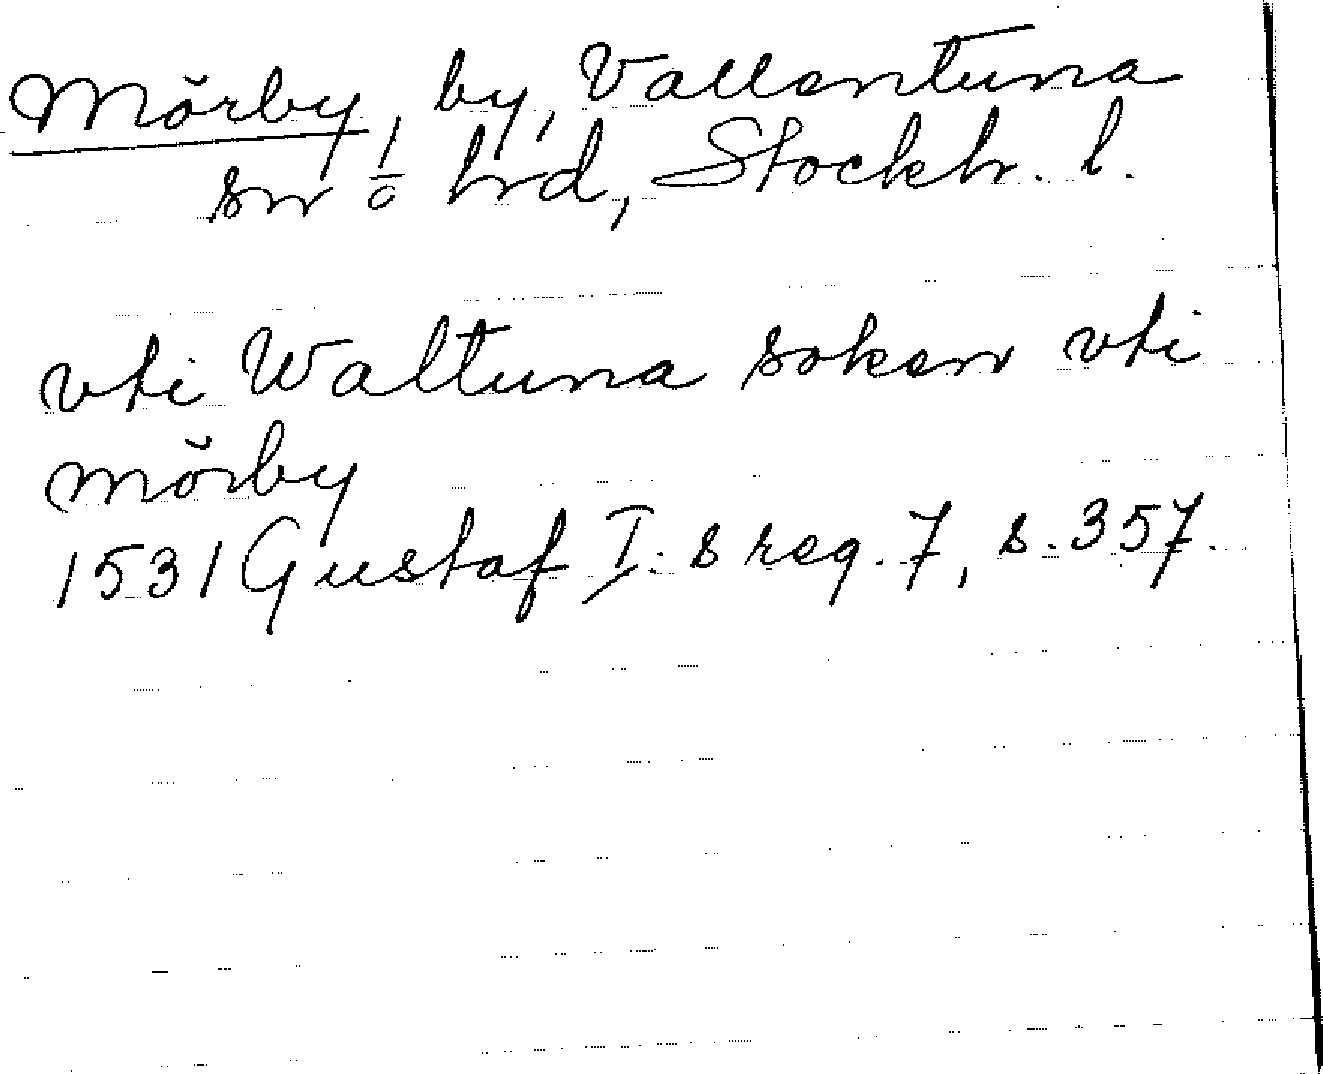 Mörby, by, Vallentuna
sn o hrd, Stockh. l.
vti Waltuna soken vti
mörby
1531 Gustaf I:s reg. 7, s. 357.